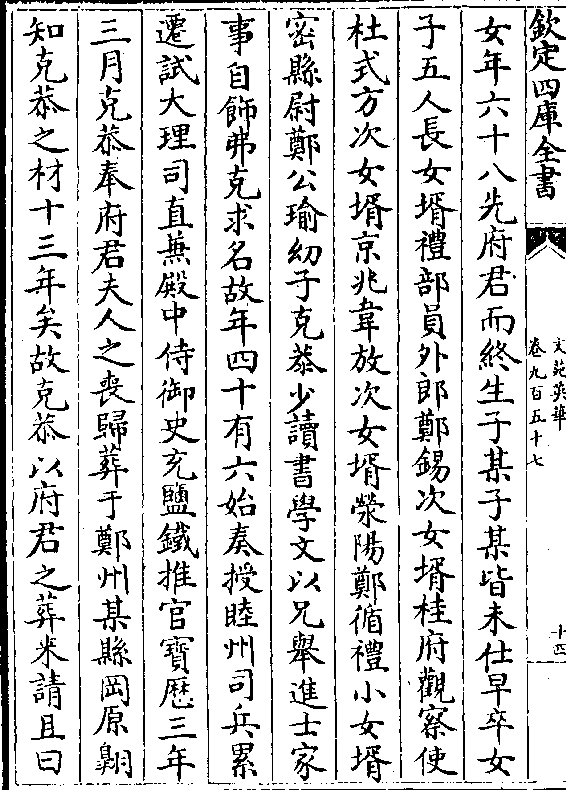 欽定四庫全書
文苑英華
卷九百五十七
十四
女年六十八先府君而終生子某子某皆未仕早卒女
子五人長女壻禮部員外郎鄭錫次女壻桂府觀察使
杜式方次女壻京兆韋放次女壻滎陽鄭循禮小女壻
密縣尉鄭公瑜幼子克恭少讀書學文以兄舉進士家
事自飾弗克求名故年四十有六始奏授睦州司兵累
遷試大理司直兼殿中侍御史充鹽鐵推官寳歴三年
三月克恭奉府君夫人之喪歸葬于鄭州某縣岡原翺
知克恭之材十三年矣故克恭以府君之葬来請且曰